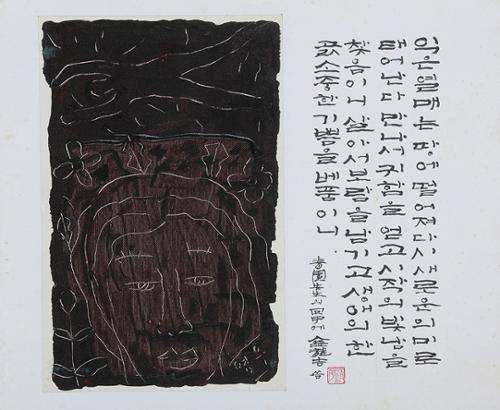 익은 열매는 땅에 떨어져 다시 새로운 의미로
태어난다 만나서 귀함을 얻고 시작의 빛남을
찾음이니 살아서 보람을 남기고 생애의 한
값 소중한 기쁨을 베품이니
先生의 回甲에 金